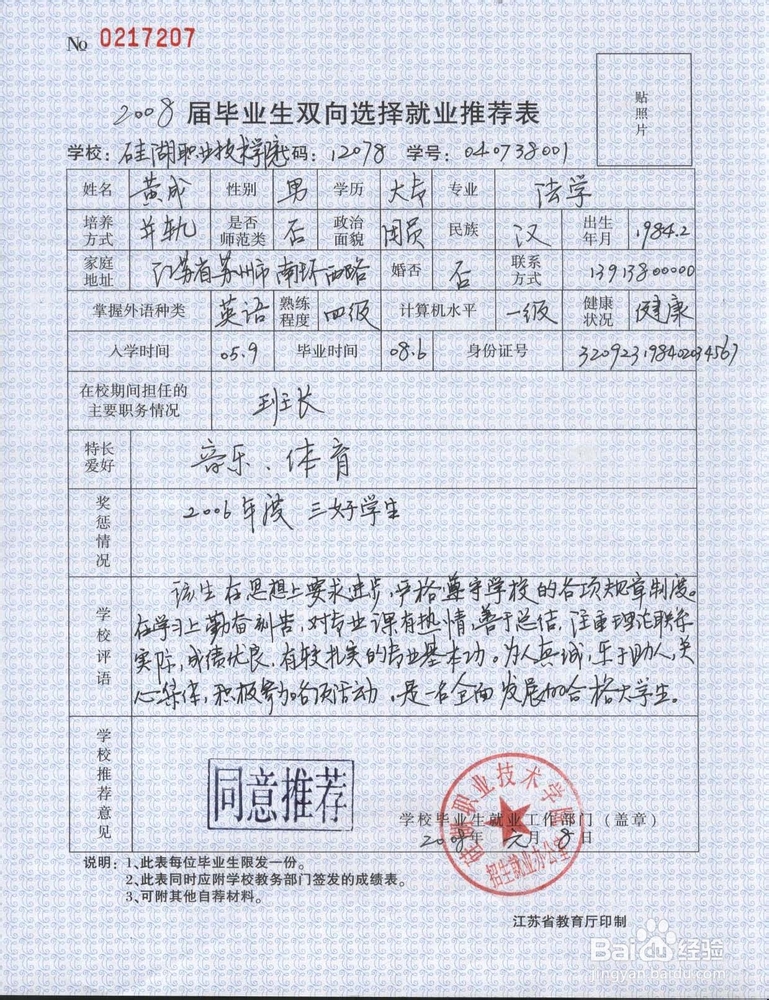 No 0217207
贴照片
2008届毕业生双向选择就业推荐表
学校：硅湖职业技术学院代码：12078 学号：040738001
姓名 黄成 性别 男 学历 大专 专业 法学
培养方式 并轨 是否师范类 否 政治面貌 团员 民族 汉 出生年月 1984.2
家庭地址 江苏省苏州市南环西路 婚否 否 联系方式 13913800000
掌握外语种类 英语 熟练程度 四级 计算机水平 一级 健康状况 健康
入学时间 05.9 毕业时间 08.6 身份证号 320923198402034567
在校期间担任的主要职务情况 班长
特长爱好 音乐、体育
奖惩情况 2006年度 三好学生
学校评语
该生在思想上要求进步，严格遵守学校的各项规章制度。
在学习上勤奋刻苦，对专业课有热情，善于总结，注重理论联系
实际，成绩优良，有较扎实的专业基本功。为人真诚，乐于助人，关
心集体，积极参加各项活动，是一名全面发展的合格大学生。
学校推荐意见
同意推荐
硅湖职业技术学院
招生就业办公室
学校毕业生就业工作部门（盖章）
2008年 元月 8日
说明：1、此表每位毕业生限发一份。
2、此表同时应附学校教务部门签发的成绩表。
3、可附其他自荐材料。
江苏省教育厅印制
Baidu经验
jingyan.baidu.com